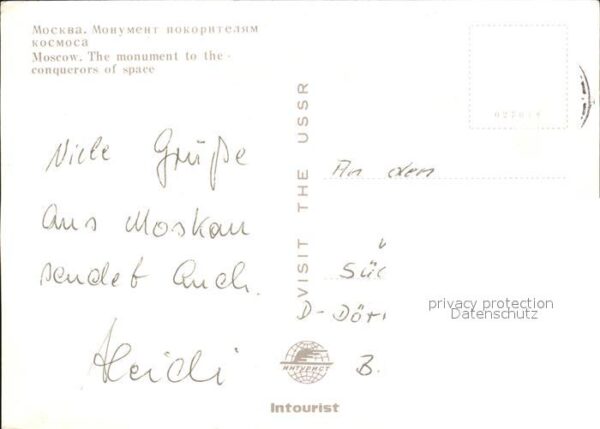 Москва. Монумент покорителям
космоса
Moscow. The monument to the
conquerors of space
Viele Grüße
aus Moskau
sendet Euch
Heidi
VISIT THE USSR
An den
Süd
D-Dör
B.
privacy protection
Datenschutz
ИНТУРИСТ
Intourist